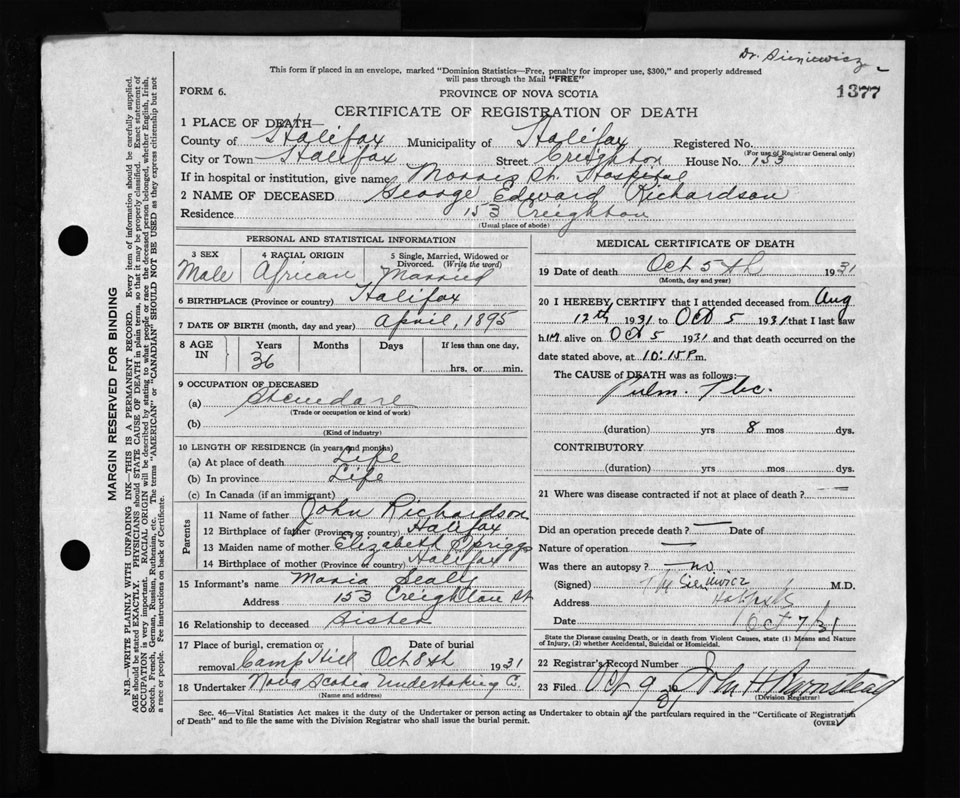 Dr. Sieniewicz
This form if placed in an envelope, marked "Dominion Statistics—Free, penalty for improper use, $300," and properly addressed
will pass through the Mail "FREE"
FORM 6.
PROVINCE OF NOVA SCOTIA
1377
CERTIFICATE OF REGISTRATION OF DEATH
1 PLACE OF DEATH—
County of Halifax Municipality of Halifax Registered No.
(For use of Registrar General only)
City or Town Halifax Street Creighton House No. 153
If in hospital or institution, give name Morris St. Hospital
2 NAME OF DECEASED George Edward Richardson
Residence 153 Creighton
(Usual place of abode)
PERSONAL AND STATISTICAL INFORMATION
3 SEX 4 RACIAL ORIGIN 5 Single, Married, Widowed or
Divorced. (Write the word)
Male African Married
6 BIRTHPLACE (Province or country) Halifax
7 DATE OF BIRTH (month, day and year) April, 1895
8 AGE IN Years Months Days If less than one day,
36 hrs. or min.
9 OCCUPATION OF DECEASED
(a)
(Trade or occupation or kind of work)
(b)
(Kind of industry)
10 LENGTH OF RESIDENCE (in years and months)
(a) At place of death Life
(b) In province Life
(c) In Canada (if an immigrant)
Parents
11 Name of father John Richardson
12 Birthplace of father (Province or country) Halifax
13 Maiden name of mother Elizabeth Spriggs
14 Birthplace of mother (Province or country) Halifax
15 Informant's name Maria Sealy
Address 153 Creighton St
16 Relationship to deceased Sister
17 Place of burial, cremation or removal Camp Hill Date of burial Oct 8th 1931
18 Undertaker Nova Scotia Undertaking C.
(Name and address)
MEDICAL CERTIFICATE OF DEATH
19 Date of death Oct 5th 1931
(Month, day and year)
20 I HEREBY CERTIFY that I attended deceased from Aug
12th 1931 to Oct 5 1931 that I last saw
him alive on Oct 5 1931 and that death occurred on the
date stated above, at 10:15 P.m.
The CAUSE of DEATH was as follows:
Pulm. Tbc.
(duration) yrs 8 mos dys.
CONTRIBUTORY
(duration) yrs mos dys.
21 Where was disease contracted if not at place of death? —
Did an operation precede death? — Date of
Nature of operation —
Was there an autopsy? no
(Signed) Sieniewicz M.D.
Address
Date Oct 7/31
State the Disease causing Death, or in death from Violent Causes, state (1) Means and Nature
of Injury, (2) whether Accidental, Suicidal or Homicidal.
22 Registrar's Record Number
23 Filed Oct 9 31 Barnstead
(Division Registrar)
Sec. 46—Vital Statistics Act makes it the duty of the Undertaker or person acting as Undertaker to obtain all the particulars required in the "Certificate of Registration
of Death" and to file the same with the Division Registrar who shall issue the burial permit.
(OVER)
MARGIN RESERVED FOR BINDING
N.B.—WRITE PLAINLY WITH UNFADING INK—THIS IS A PERMANENT RECORD. Every item of information should be carefully supplied.
AGE should be stated EXACTLY. PHYSICIANS should STATE CAUSE OF DEATH in plain terms, so that it may be properly classified. Exact statement of
OCCUPATION is very important. RACIAL ORIGIN will be described by stating to what people or race the deceased person belonged, whether English, Irish,
Scotch, French, German, Russian, Ruthenian, etc. The terms "AMERICAN" or "CANADIAN" SHOULD NOT BE USED as they express citizenship but not
a race or people. Fee instructions on back of Certificate.